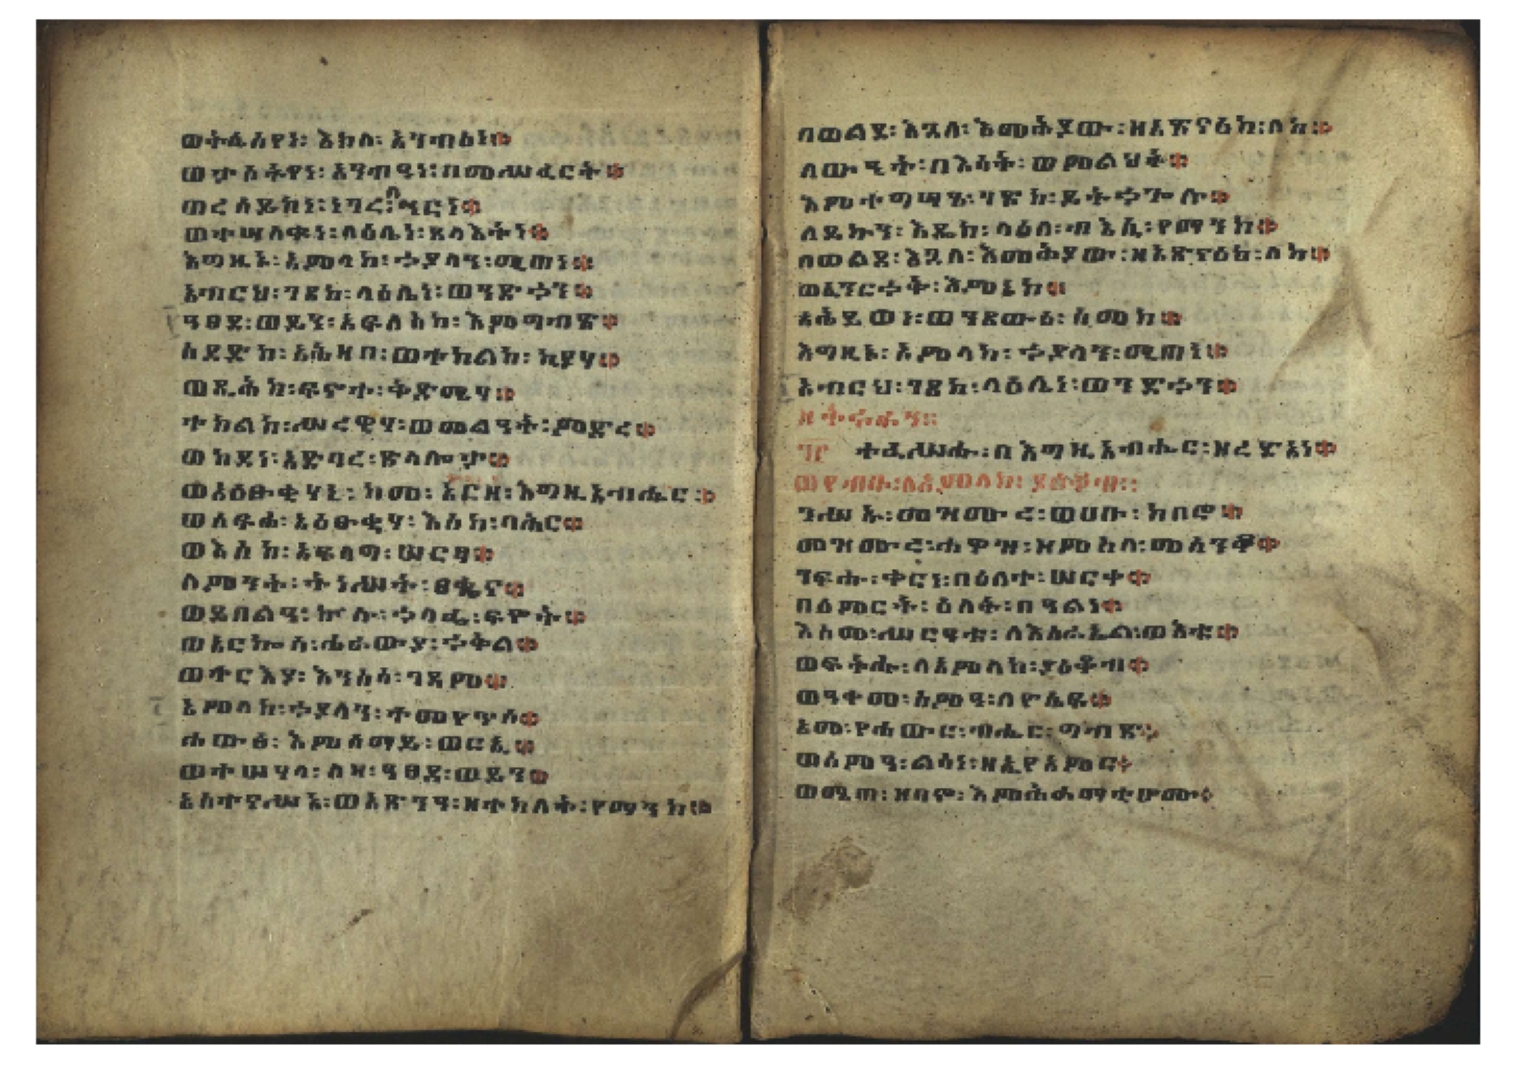 ወትሴስየነ፡ እክለ፡ አንብዕነ።
ወታሰትየነ፡ አንብዓነ፡ በመሥፈርት።
ወረሰይከነ፡ ነገረ፡ በጎርነ።
ወተሣለቁነ፡ ላዕሌነ፡ ጸላእትነ።
እግዚኦ፡ አምላከ፡ ኃያላን፡ ሚጠነ።
አብርህ፡ ገጸከ፡ ላዕሌነ፡ ወንድኅን።
ዓፀደ፡ ወይን፡ አፍለስከ፡ እምግብጽ።
ሰደድከ፡ አሕዛበ፡ ወተከልከ፡ ኪያሃ።
ወጼሕከ፡ ፍኖተ፡ ቅድሜሃ።
ተከልከ፡ ሥረዊሃ፡ ወመልዓት፡ ምድረ።
ወከደነ፡ አድባረ፡ ጽላሎታ።
ወአዕፁቂሃኒ፡ ከመ፡ አርዘ፡ እግዚአብሔር።
ወሰፍሐ፡ አዕፁቂሃ፡ እስከ፡ ባሕር።
ወእስከ፡ አፍላግ፡ ሠርፃ።
ለምንት፡ ትነሥት፡ ፀቈና።
ወይበልዓ፡ ኵሉ፡ ኃላፌ፡ ፍኖት።
ወአርኰሳ፡ ሐራውያ፡ ኃቅል።
ወትርእያ፡ እንስሳ፡ ገዳም።
አምላከ፡ ኃያላን፡ ተመየጥሶ።
ሐውፅ፡ እምሰማይ፡ ወርኢ።
ወተሣሃላ፡ ለዛ፡ ዓፀደ፡ ወይን።
አስተናሥኣ፡ ወአጽንዓ፡ ዘተከለት፡ የማንከ።
በወልደ፡ እጓለ፡ እመሕያው፡ ዘአጽናዕከ፡ ለከ።
ለውዒት፡ በእሳት፡ ወምልህት።
እምተግሣጸ፡ ገጽከ፡ ይትኃጐሉ።
ለይኩን፡ እዴከ፡ ላዕለ፡ ብእሲ፡ የማንከ።
በወልደ፡ እጓለ፡ እመሕያው፡ ዘአጽናዕከ፡ ለከ።
ወኢንርኃቅ፡ እምኔከ።
አሕይወነ፡ ወንጼውዕ፡ ስመከ።
እግዚኦ፡ አምላከ፡ ኃያላን፡ ሚጠነ።
አብርህ፡ ገጸከ፡ ላዕሌነ፡ ወንድኅን።
፹ ተፈሥሑ፡ በእግዚአብሔር፡ ዘረድአነ።
ወየብቡ፡ ለአምላከ፡ ያዕቆብ።
ንሥኡ፡ መዝሙረ፡ ወሀቡ፡ ከበሮ።
መዝሙረ፡ ሐዋዝ፡ ዘምስለ፡ መሰንቆ።
ንፍሑ፡ ቀርነ፡ በዕለተ፡ ሠርቀ።
በዕምርት፡ ዕለት፡ በዓልነ።
እስመ፡ ሥርዓቱ፡ ለእስራኤል፡ ውእቱ።
ወፍትሑ፡ ለአምላከ፡ ያዕቆብ።
ወዓቀመ፡ ስምዓ፡ ለዮሴፍ።
አመ፡ የሐውር፡ ብሔር፡ ግብጽ።
ወሰምዓ፡ ልሳነ፡ ዘኢየአምር።
ወሜጠ፡ ዘባኖ፡ እምሕማማቲሆሙ።